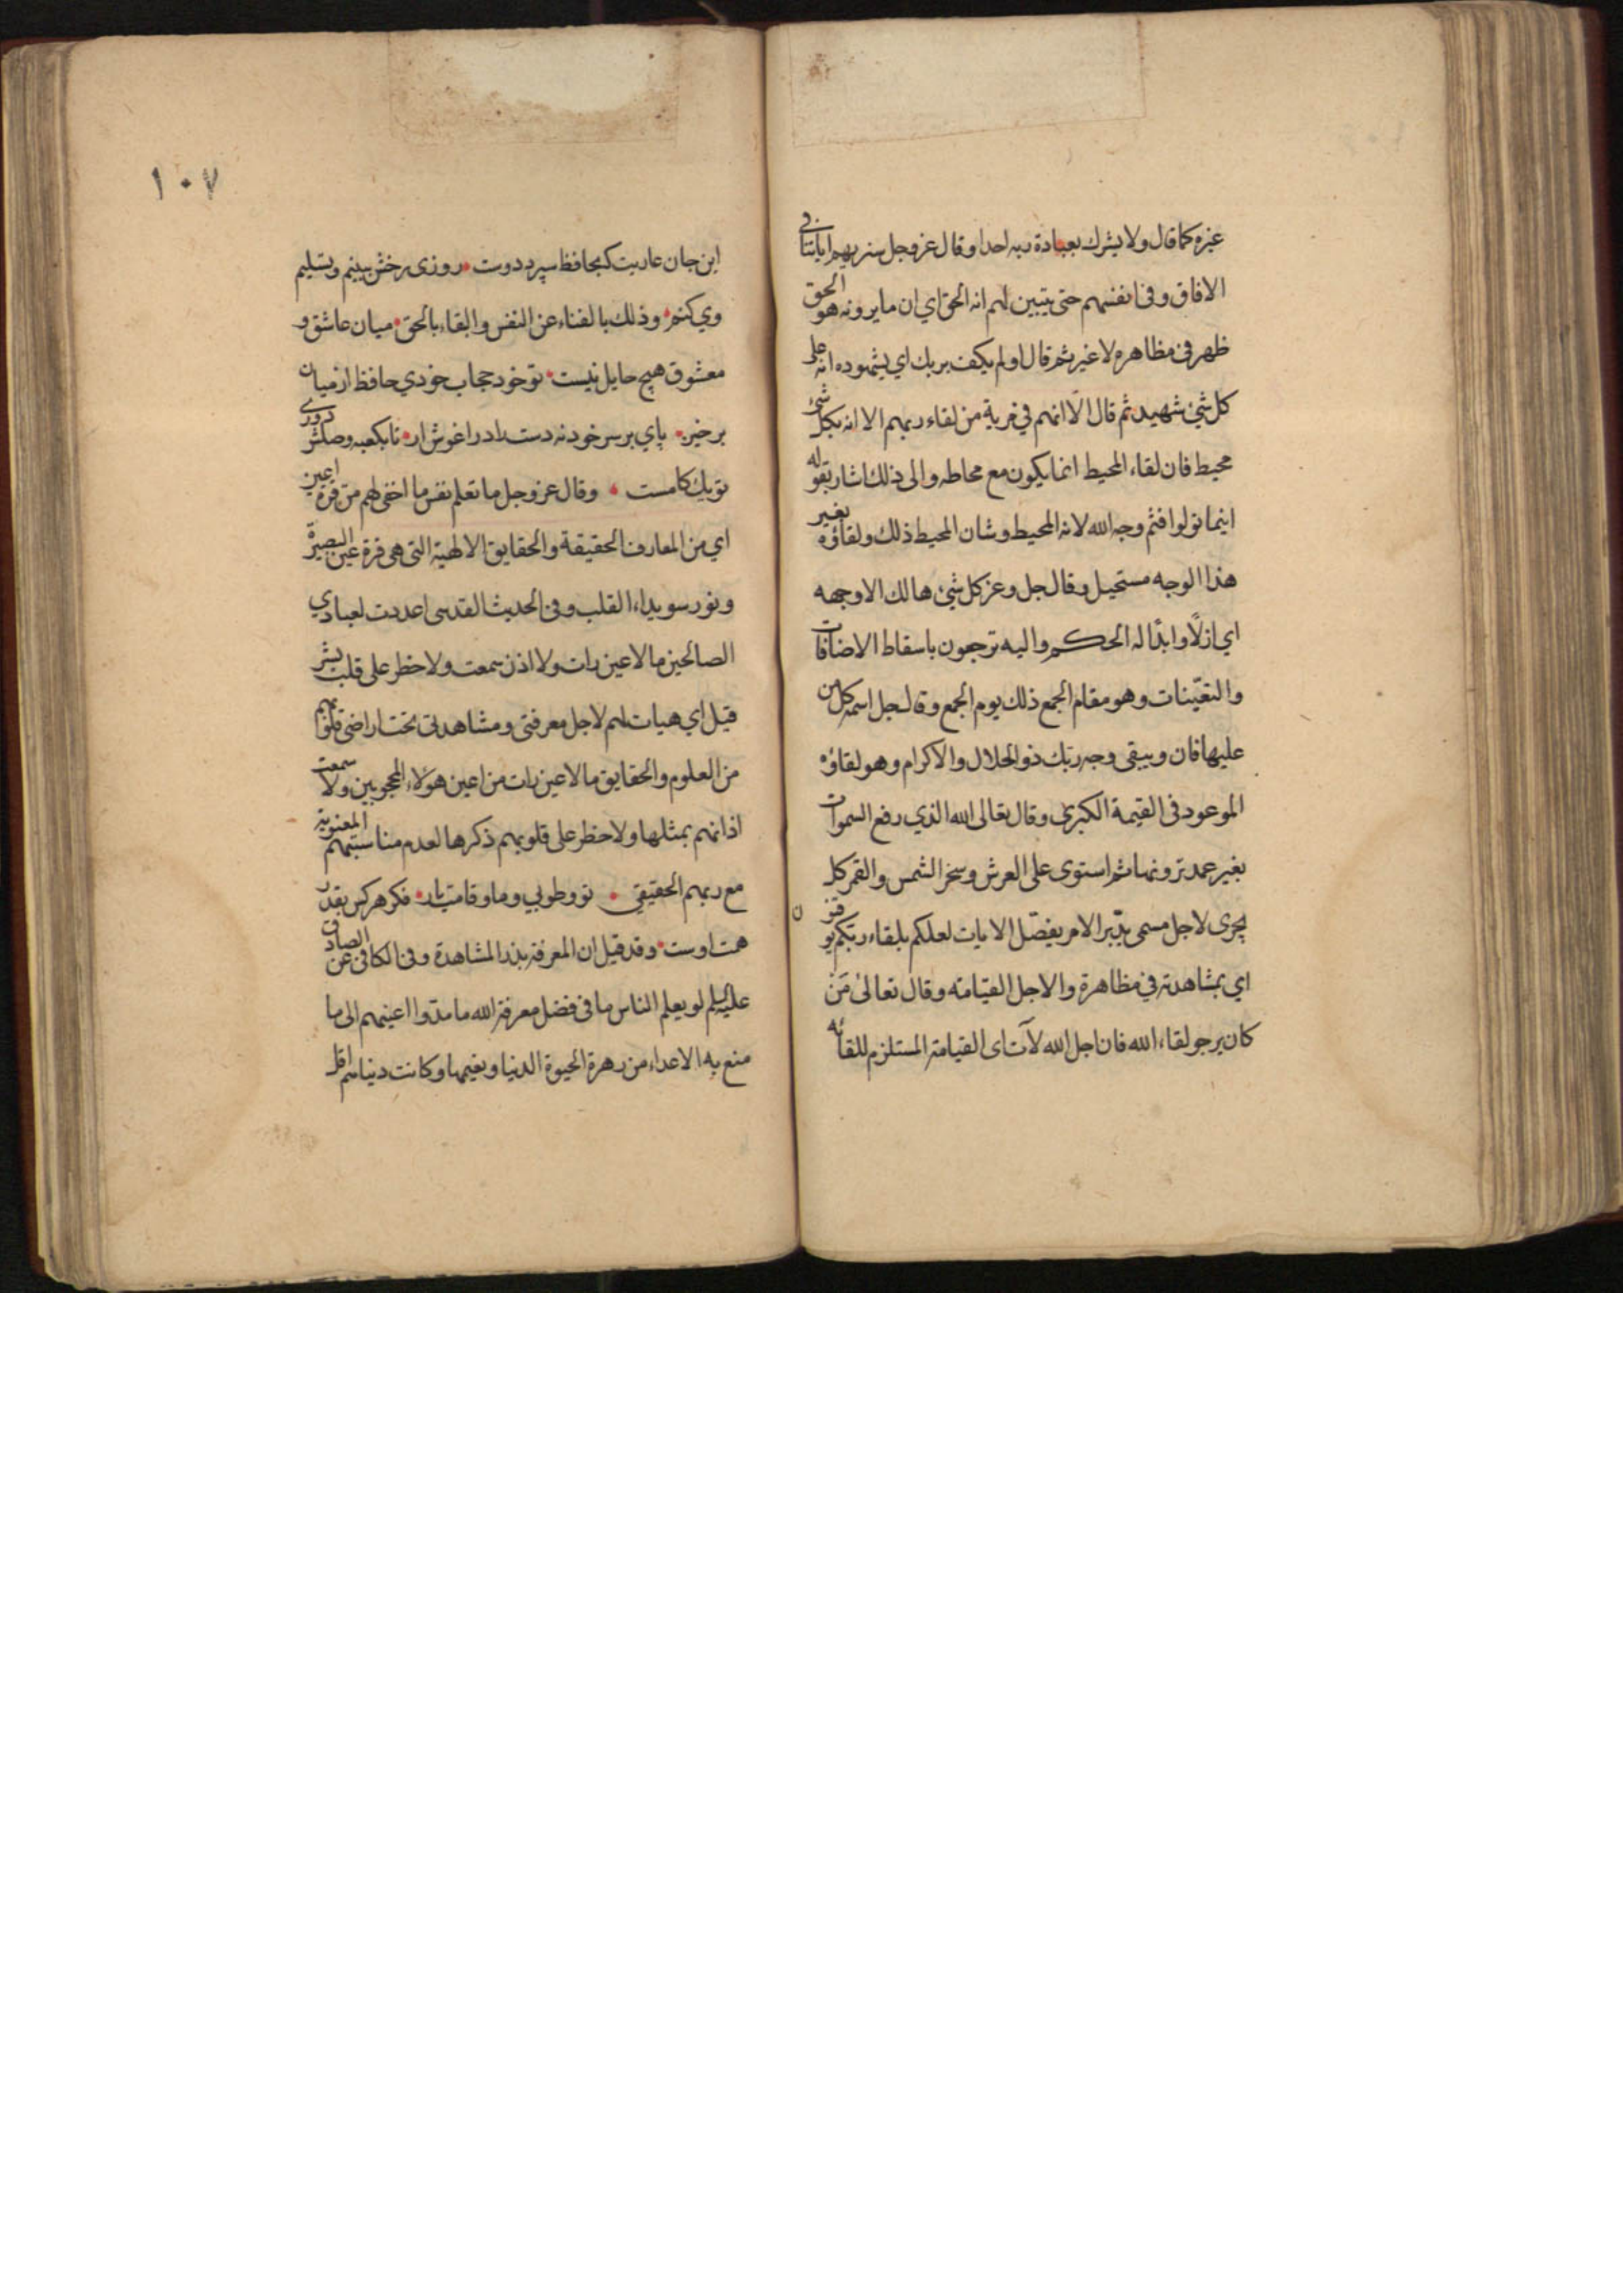 غيره كما قال ولا يشرك بعبادة ربه احدا وقال عز وجل سنريهم اياتنا في
الافاق وفي انفسهم حتى يتبين لهم انه الحق اي ان ما يرونه هو الحق
ظهر في مظاهره لا غير ثم قال اولم يكف بربك اي يشهوده انه على
كل شئ شهيد ثم قال الا انهم في مرية من لقاء ربهم الا انه بكل شئ
محيط فان لقاء المحيط انما يكون مع محاطه والى ذلك اشار بقوله
اينما تولوا فثم وجه الله لانه المحيط وشان المحيط ذلك ولقاؤه بغير
هذا الوجه مستحيل وقال جل وعز كل شئ هالك الا وجهه
اي ازلًا وابدًا له الحكم واليه ترجعون باسقاط الاضافات
والتعيّنات وهو مقام الجمع ذلك يوم الجمع وقال جل اسمه كل من
عليها فان ويبقى وجه ربّك ذو الجلال والاكرام وهو لقاؤه
الموعود في القيمة الكبرى وقال تعالى الله الذي رفع السموات
بغير عمد ترونها ثم استوى على العرش وسخر الشمس والقمر كل
يجرى لاجل مسمى يدّبر الامر يفصّل الايات لعلكم بلقاء ربّكم توقنون
اي بمشاهدته في مظاهرة والاجل القيامته وقال تعالىٰ مَنْ
كان يرجو لقاء الله فان اجل الله لآت اى القيامة المستلزم للقائه
١٠٧
اين جان عاريت كه بحافظ سپرد دوست روزى رخش ببينم وتسليم
وي كنم وذلك بالفناء عن النفس والبقاء بالحق ميان عاشق و
معشوق هيچ حايل نيست تو خود حجاب خودي حافظ از ميان
برخيز پاي بر سر خود نه دست را در اغوش ار تا بكعبه وصلش دورى
تو يك كامست وقال عز وجل ما تعلم نفس ما اخفى لهم من قرة اعين
اي من المعارف الحقيقة والحقايق الالهية التى هى قرة عين البصيرة
ونور سويداء القلب وفى الحديث القدسى اعددت لعبادي
الصالحين ما لا عين رات ولا اذن سمعت ولا خطر على قلب بشر
قيل اي هيات لهم لاجل معرفتى ومشاهدتى تحت اراضى قلوبهم
من العلوم والحقايق ما لا عين رات من اعين هؤلاء المحجوبين ولا سمعت
اذانهم بمثلها ولا خطر على قلوبهم ذكرها لعدم مناسبتهم المعنوية
مع ربهم الحقيقي تو وطوبي وما وقامت يار فكر هر كس بقدر
همت اوست وقد قيل ان المعرفة بذر المشاهدة وفى الكافى عن الصادق
عليه السلم لو يعلم الناس ما فى فضل معرفة الله ما مدوا اعينهم الى ما
متع به الاعداء من زهرة الحيوة الدنيا ونعيمها وكانت دنياهم اقل